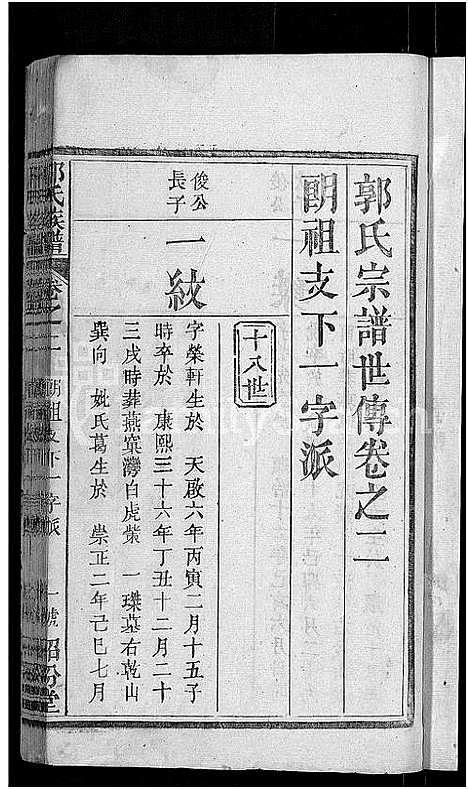 郭氏宗譜世傳卷之二
朙祖支下一字派
十八世
俊公
長子
一紋
字榮軒生於 天啟六年丙寅二月十五子
時卒於 康熙三十六年丁丑十二月二十
三戌時葬燕窩灣白虎嘴 一璨墓右乾山
巽向 妣氏葛生於 崇正二年己巳七月
郭氏族譜 卷之二 朙祖支下一字派 一號